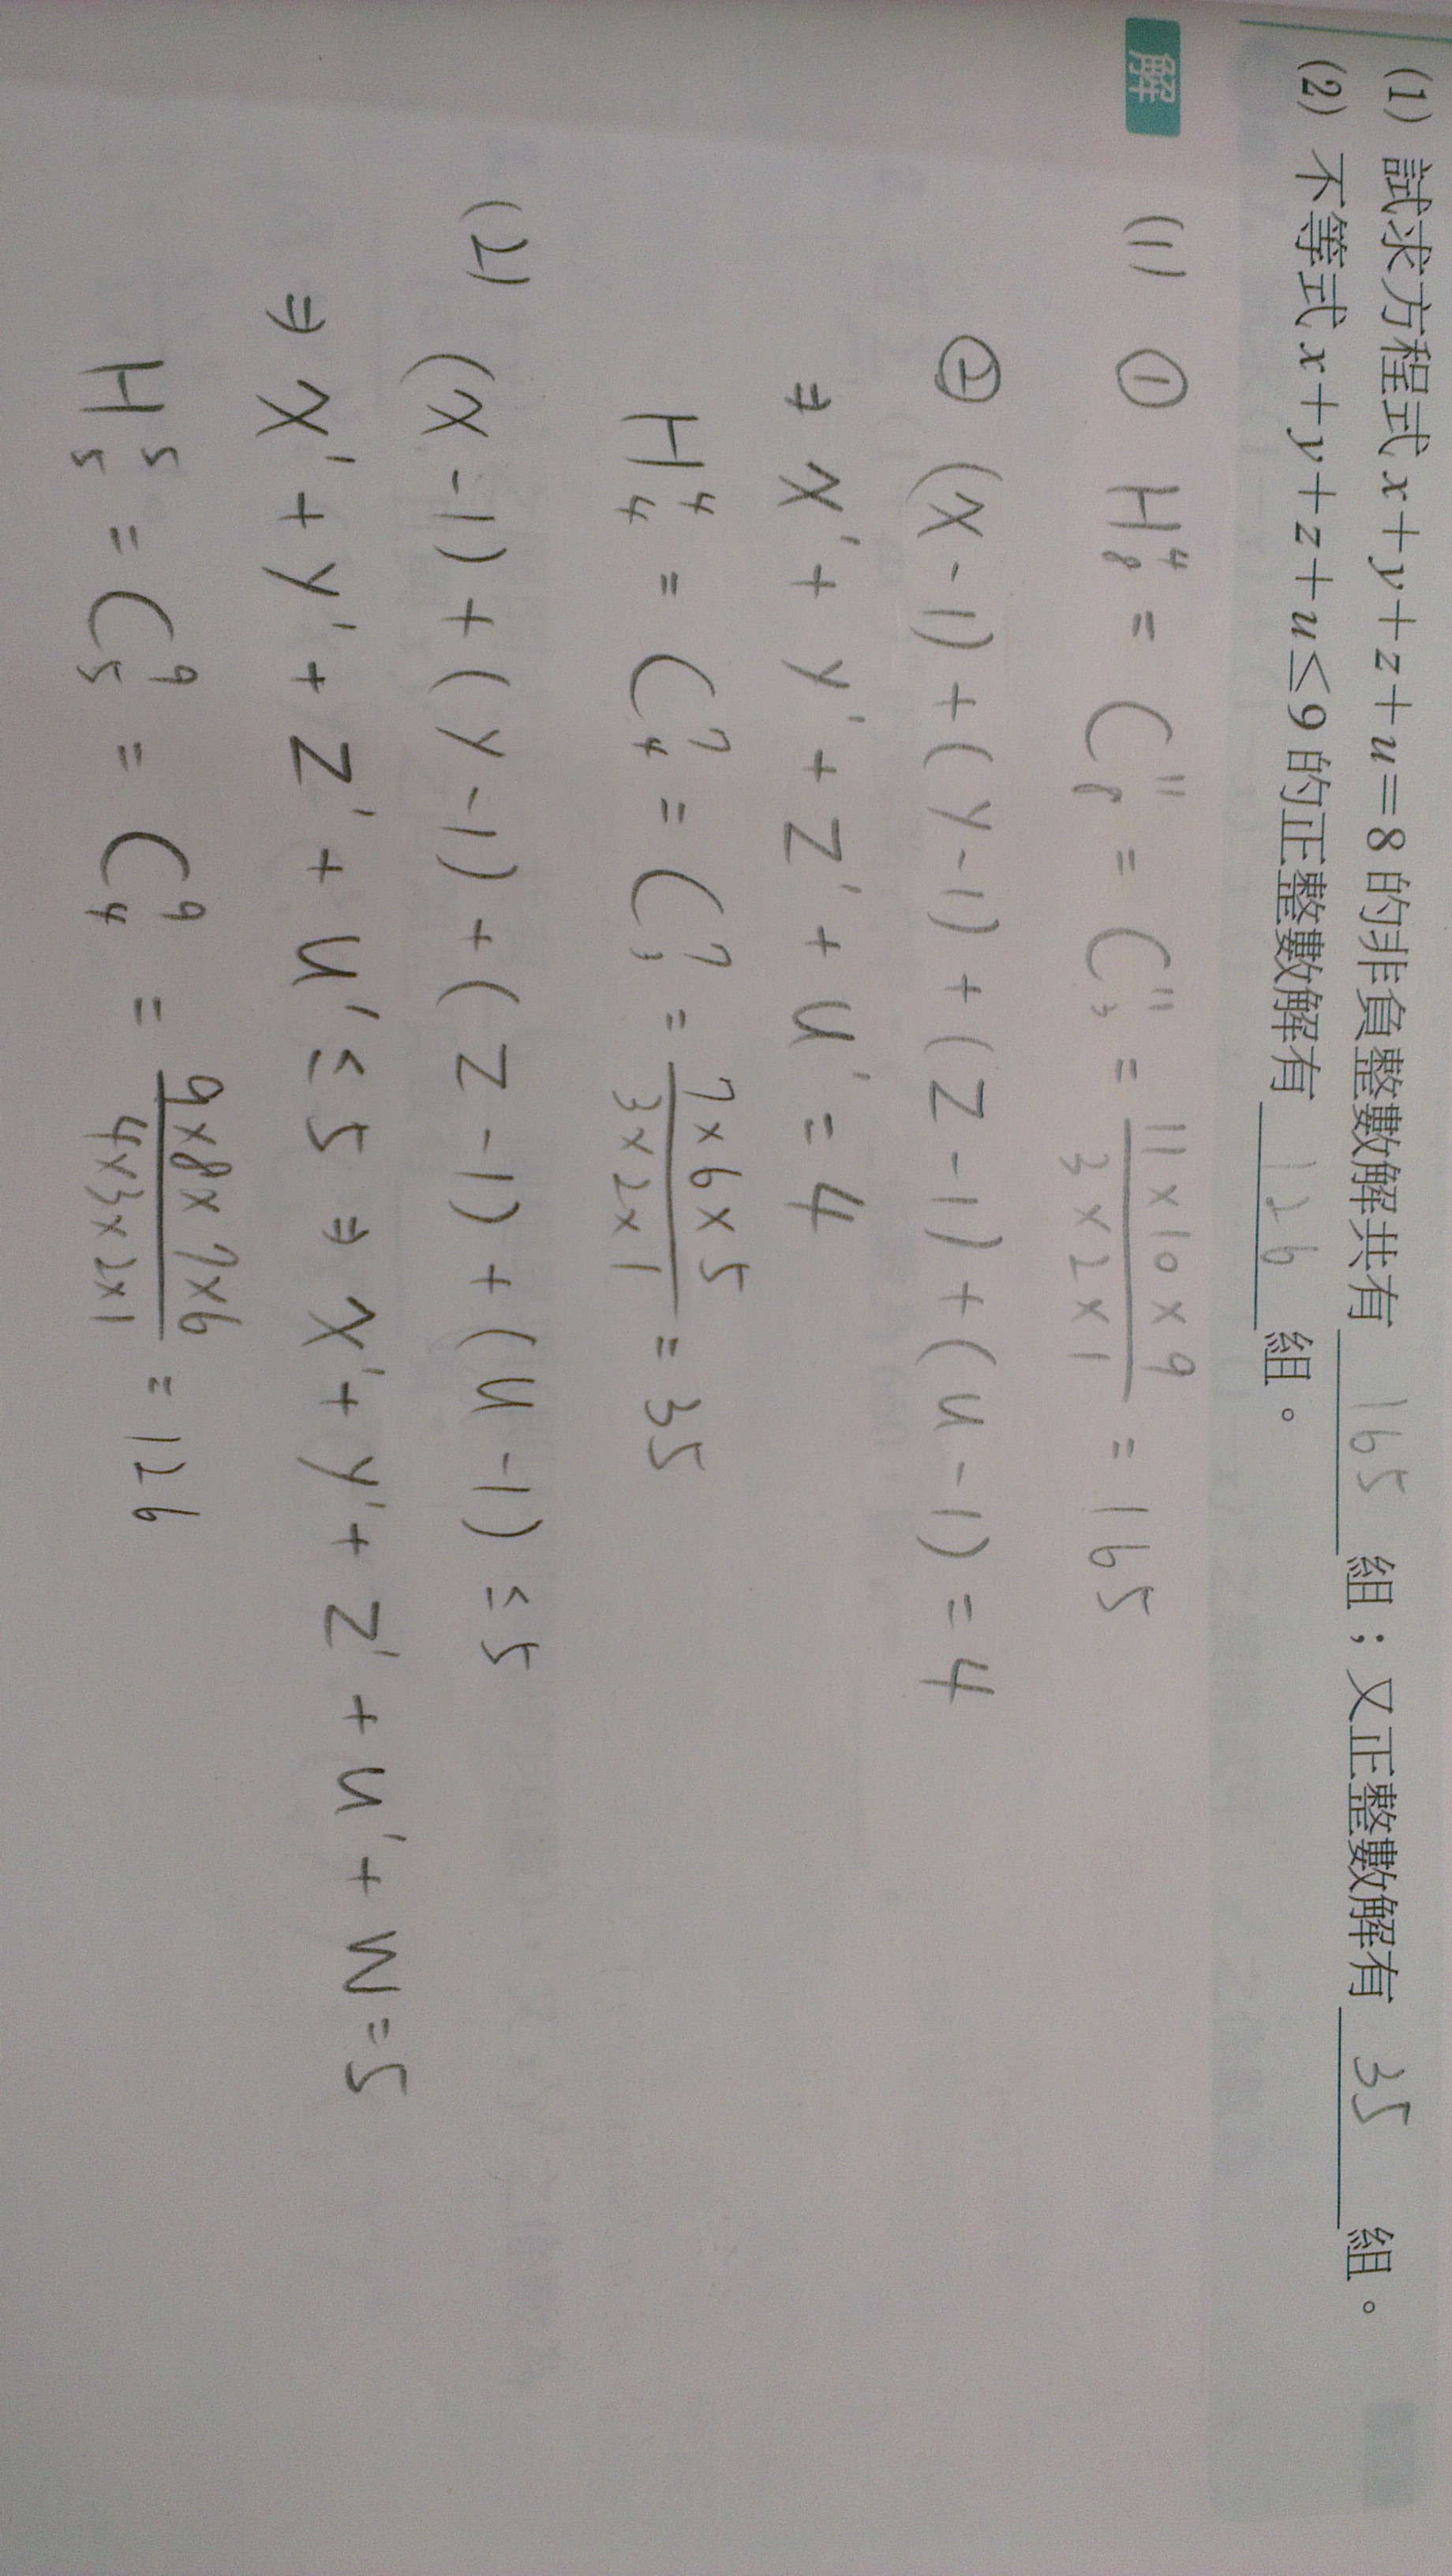 (1) 試求方程式 x+y+z+u=8 的非負整數解共有 165 組；又正整數解有 35 組。
(2) 不等式 x+y+z+u≤9 的正整數解有 126 組。
解
(1) ① H⁴₈ = C¹¹₈ = C¹¹₃ = 11×10×9 / 3×2×1 = 165
② (x-1)+(y-1)+(z-1)+(u-1)=4
⇒ x'+y'+z'+u'=4
H⁴₄ = C⁷₄ = C⁷₃ = 7×6×5 / 3×2×1 = 35
(2) (x-1)+(y-1)+(z-1)+(u-1)≤5
⇒ x'+y'+z'+u'≤5 ⇒ x'+y'+z'+u'+w=5
H⁵₅ = C⁹₅ = C⁹₄ = 9×8×7×6 / 4×3×2×1 = 126